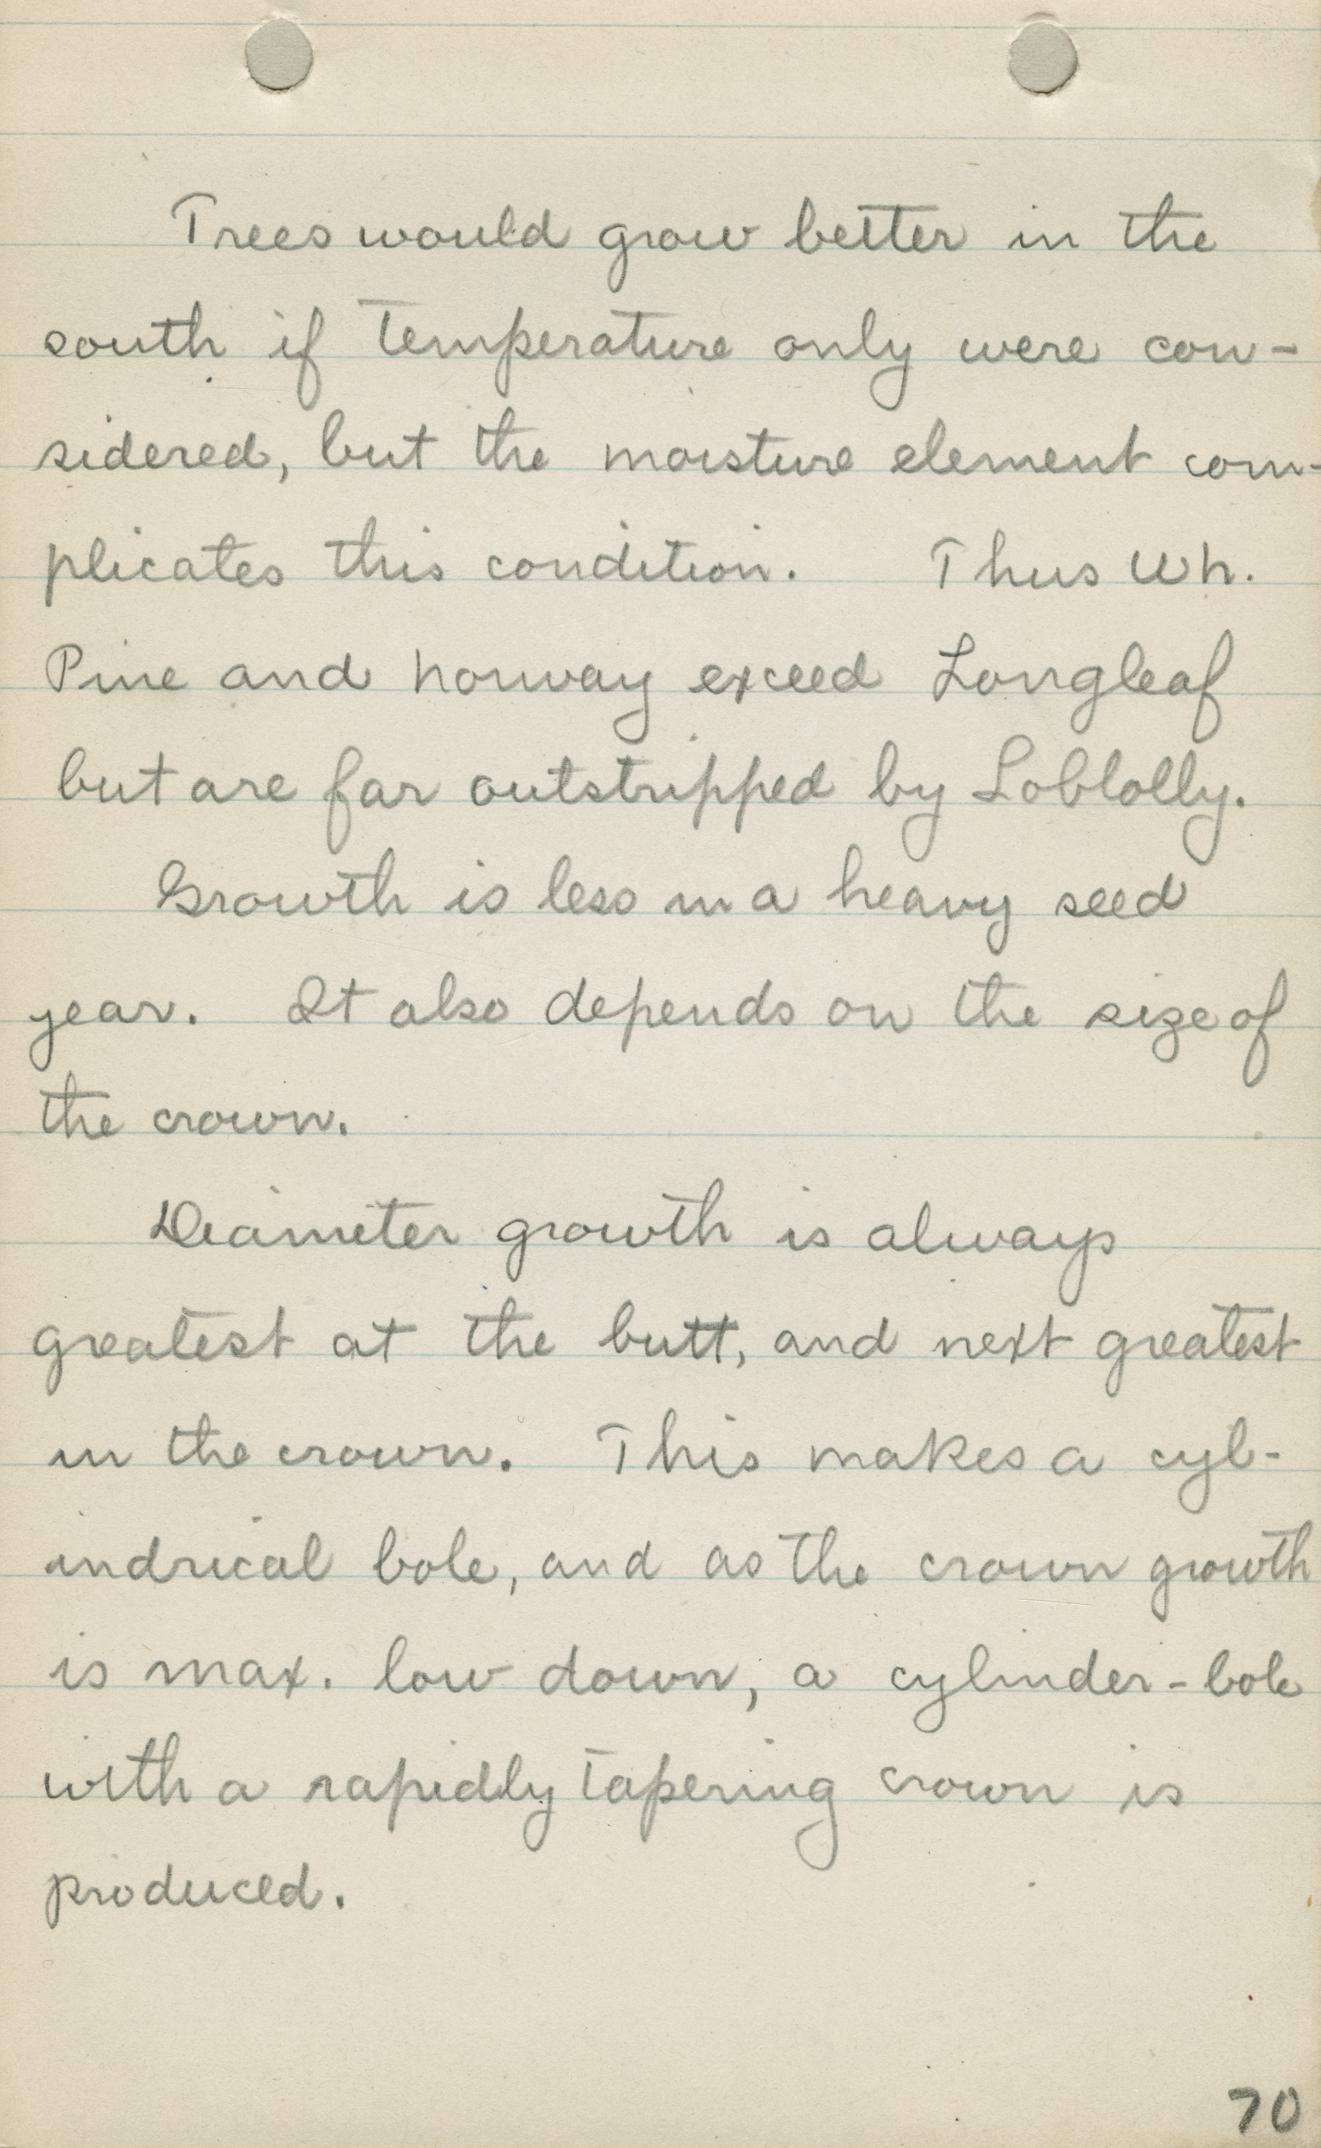 Trees would grow better in the
south if temperature only were con-
sidered, but the moisture element com-
plicates this condition. Thus Wh.
Pine and Norway exceed Longleaf
but are far outstripped by Loblolly.
Growth is less in a heavy seed
year. It also depends on the size of
the crown.
Diameter growth is always
greatest at the butt, and next greatest
in the crown. This makes a cyl-
indrical bole, and as the crown growth
is max. low down, a cylinder-bole
with a rapidly tapering crown is
produced.
70